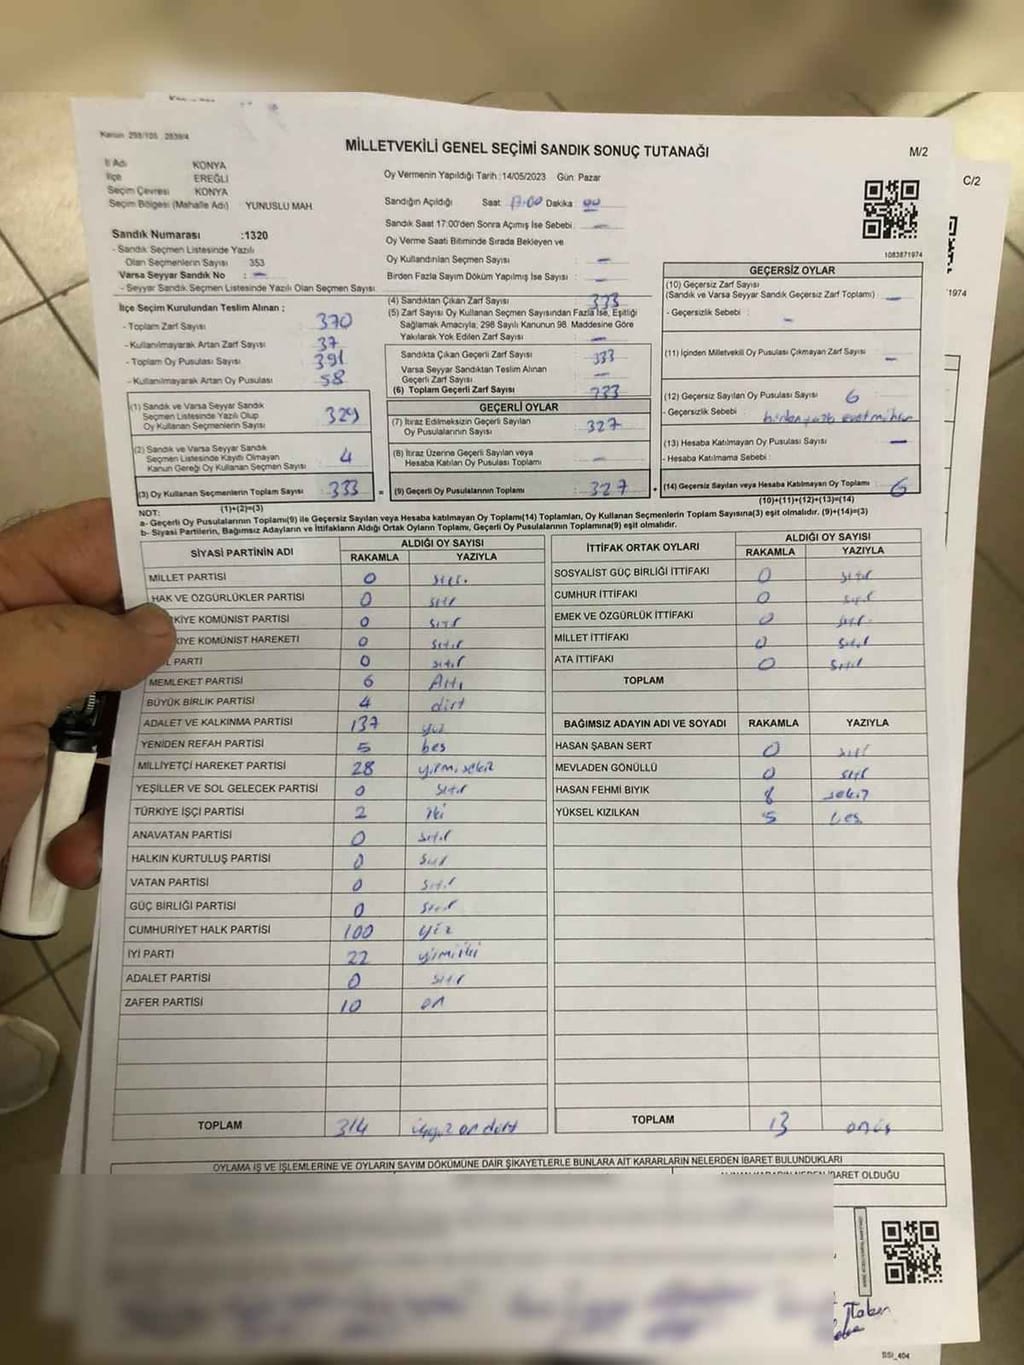 Kanun 298/105 2839/4
MİLLETVEKİLİ GENEL SEÇİMİ SANDIK SONUÇ TUTANAĞI
M/2
C/2
İl Adı KONYA
İlçe EREĞLİ
Seçim Çevresi KONYA
Seçim Bölgesi (Mahalle Adı) YUNUSLU MAH.
Oy Vermenin Yapıldığı Tarih :14/05/2023 Gün: Pazar
Sandığın Açıldığı Saat 17:00 Dakika: 00
Sandık Saat 17:00'den Sonra Açımış İse Sebebi : —
Oy Verme Saati Bitiminde Sırada Bekleyen ve
Oy Kullandırılan Seçmen Sayısı : —
Birden Fazla Sayım Döküm Yapılmış İse Sayısı : —
1083871974
1974
Sandık Numarası :1320
- Sandık Seçmen Listesinde Yazılı
Olan Seçmenlerin Sayısı 353
Varsa Seyyar Sandık No : —
- Seyyar Sandık Seçmen Listesinde Yazılı Olan Seçmen Sayısı
İlçe Seçim Kurulundan Teslim Alınan ;
- Toplam Zarf Sayısı : 370
- Kullanılmayarak Artan Zarf Sayısı : 37
- Toplam Oy Pusulası Sayısı : 391
- Kullanılmayarak Artan Oy Pusulası : 58
(1) Sandık ve Varsa Seyyar Sandık
Seçmen Listesinde Yazılı Olup
Oy Kullanan Seçmenlerin Sayısı : 329
(2) Sandık ve Varsa Seyyar Sandık
Seçmen Listesinde Kayıtlı Olmayan
Kanun Gereği Oy Kullanan Seçmen Sayısı : 4
(3) Oy Kullanan Seçmenlerin Toplam Sayısı : 333
(1)+(2)=(3)
(4) Sandıktan Çıkan Zarf Sayısı : 333
(5) Zarf Sayısı Oy Kullanan Seçmen Sayısından Fazla İse, Eşitliği
Sağlamak Amacıyla; 298 Sayılı Kanunun 98. Maddesine Göre
Yakılarak Yok Edilen Zarf Sayısı : —
Sandıkta Çıkan Geçerli Zarf Sayısı : 333
Varsa Seyyar Sandıktan Teslim Alınan
Geçerli Zarf Sayısı : —
(6) Toplam Geçerli Zarf Sayısı : 333
GEÇERLİ OYLAR
(7) İtiraz Edilmeksizin Geçerli Sayılan
Oy Pusulalarının Sayısı : 327
(8) İtiraz Üzerine Geçerli Sayılan veya
Hesaba Katılan Oy Pusulası Toplamı : —
= (9) Geçerli Oy Pusulalarının Toplamı : 327
GEÇERSİZ OYLAR
(10) Geçersiz Zarf Sayısı
(Sandık ve Varsa Seyyar Sandık Geçersiz Zarf Toplamı) : —
- Geçersizlik Sebebi : —
(11) İçinden Milletvekili Oy Pusulası Çıkmayan Zarf Sayısı : —
(12) Geçersiz Sayılan Oy Pusulası Sayısı : 6
- Geçersizlik Sebebi : birden fazla evet mühür
(13) Hesaba Katılmayan Oy Pusulası Sayısı : —
- Hesaba Katılmama Sebebi :
+ (14) Geçersiz Sayılan veya Hesaba Katılmayan Oy Toplamı : 6
(10)+(11)+(12)+(13)=(14)
NOT:
a- Geçerli Oy Pusulalarının Toplamı(9) ile Geçersiz Sayılan veya Hesaba katılmayan Oy Toplamı(14) Toplamları, Oy Kullanan Seçmenlerin Toplam Sayısına(3) eşit olmalıdır. (9)+(14)=(3)
b- Siyasi Partilerin, Bağımsız Adayların ve İttifakların Aldığı Ortak Oyların Toplamı, Geçerli Oy Pusulalarının Toplamına(9) eşit olmalıdır.
SİYASİ PARTİNİN ADI ALDIĞI OY SAYISI
RAKAMLA YAZIYLA
MİLLET PARTİSİ 0 sıfır
HAK VE ÖZGÜRLÜKLER PARTİSİ 0 sıfır
KİYE KOMÜNİST PARTİSİ 0 sıfır
KİYE KOMÜNİST HAREKETİ 0 sıfır
L PARTİ 0 sıfır
MEMLEKET PARTİSİ 6 Altı
BÜYÜK BİRLİK PARTİSİ 4 dört
ADALET VE KALKINMA PARTİSİ 137 yüz
YENİDEN REFAH PARTİSİ 5 beş
MİLLİYETÇİ HAREKET PARTİSİ 28 yirmisekiz
YEŞİLLER VE SOL GELECEK PARTİSİ 0 sıfır
TÜRKİYE İŞÇİ PARTİSİ 2 iki
ANAVATAN PARTİSİ 0 sıfır
HALKIN KURTULUŞ PARTİSİ 0 sıfır
VATAN PARTİSİ 0 sıfır
GÜÇ BİRLİĞİ PARTİSİ 0 sıfır
CUMHURİYET HALK PARTİSİ 100 yüz
İYİ PARTİ 22 yirmiiki
ADALET PARTİSİ 0 sıfır
ZAFER PARTİSİ 10 on
TOPLAM 314 üçyüz on dört
İTTİFAK ORTAK OYLARI ALDIĞI OY SAYISI
RAKAMLA YAZIYLA
SOSYALİST GÜÇ BİRLİĞİ İTTİFAKI 0 sıfır
CUMHUR İTTİFAKI 0 sıfır
EMEK VE ÖZGÜRLÜK İTTİFAKI 0 sıfır
MİLLET İTTİFAKI 0 sıfır
ATA İTTİFAKI 0 sıfır
TOPLAM
BAĞIMSIZ ADAYIN ADI VE SOYADI RAKAMLA YAZIYLA
HASAN ŞABAN SERT 0 sıfır
MEVLADEN GÖNÜLLÜ 0 sıfır
HASAN FEHMİ BIYIK 8 sekiz
YÜKSEL KIZILKAN 5 beş
TOPLAM 13 onüç
OYLAMA İŞ VE İŞLEMLERİNE VE OYLARIN SAYIM DÖKÜMÜNE DAİR ŞİKAYETLERLE BUNLARA AİT KARARLARIN NELERDEN İBARET BULUNDUKLARI
İBARET OLDUĞU